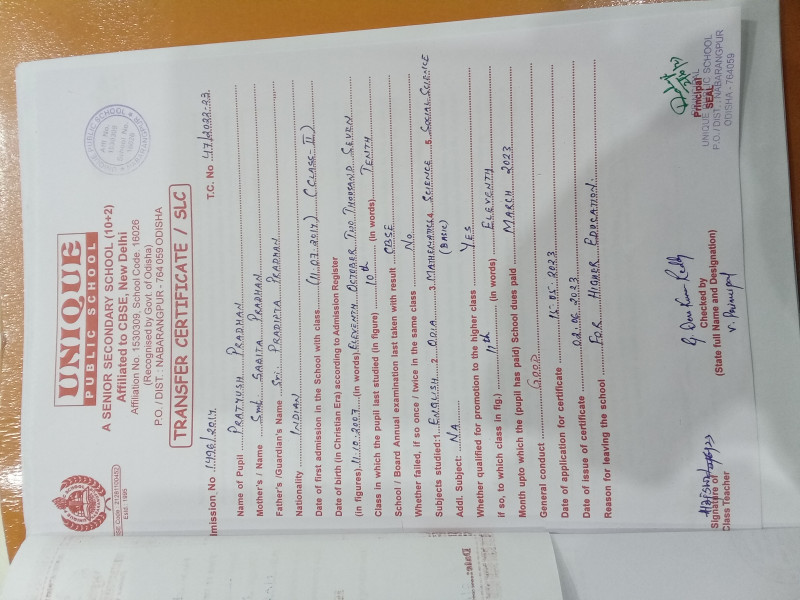 UNIQUE
PUBLIC SCHOOL
A SENIOR SECONDARY SCHOOL (10+2)
Affiliated to CBSE, New Delhi
Affiliation No. 1530309, School Code. 16026
(Recognised by Govt. of Odisha)
P.O./ DIST.: NABARANGPUR - 764 059 ODISHA
Estd. 1995
TRANSFER CERTIFICATE / SLC
dmission No 1496/2014 T.C. No 47/2022-23
Name of Pupil PRATYUSH PRADHAN
Mother's / Name Smt. SABITA PRADHAN
Father's /Guardian's Name Sri. PRADIPTA PRADHAN
Nationality INDIAN
Date of first admission in the School with class (11.07.2014) (CLASS-II)
Date of birth (in Christian Era) according to Admission Register
(in figures) 11.10.2007 (in words) ELEVENTH OCTOBER TWO THOUSAND SEVEN
Class in which the pupil last studied (in figure) 10th (in words) TENTH
School / Board Annual examination last taken with result CBSE
Whether failed, if so once / twice in the same class NO
Subjects studied: 1. ENGLISH 2. ODIA 3. MATHEMATICS 4. SCIENCE 5. SOCIAL SCIENCE
(BASIC)
Addl. Subject: NA
Whether qualified for promotion to the higher class YES
if so, to which class in fig.) 11th (in words) ELEVENTH
Month upto which the (pupil has paid) School dues paid MARCH 2023
General conduct GOOD
Date of application for certificate 16.05.2023
Date of issue of certificate 02.06.2023
Reason for leaving the school FOR HIGHER EDUCATION.
Signature of
Class Teacher
Checked by
(State full Name and Designation)
V. Principal
Principal
SEAL
UNIQUE PUBLIC SCHOOL
P.O./ DIST.: NABARANGPUR
ODISHA - 764059